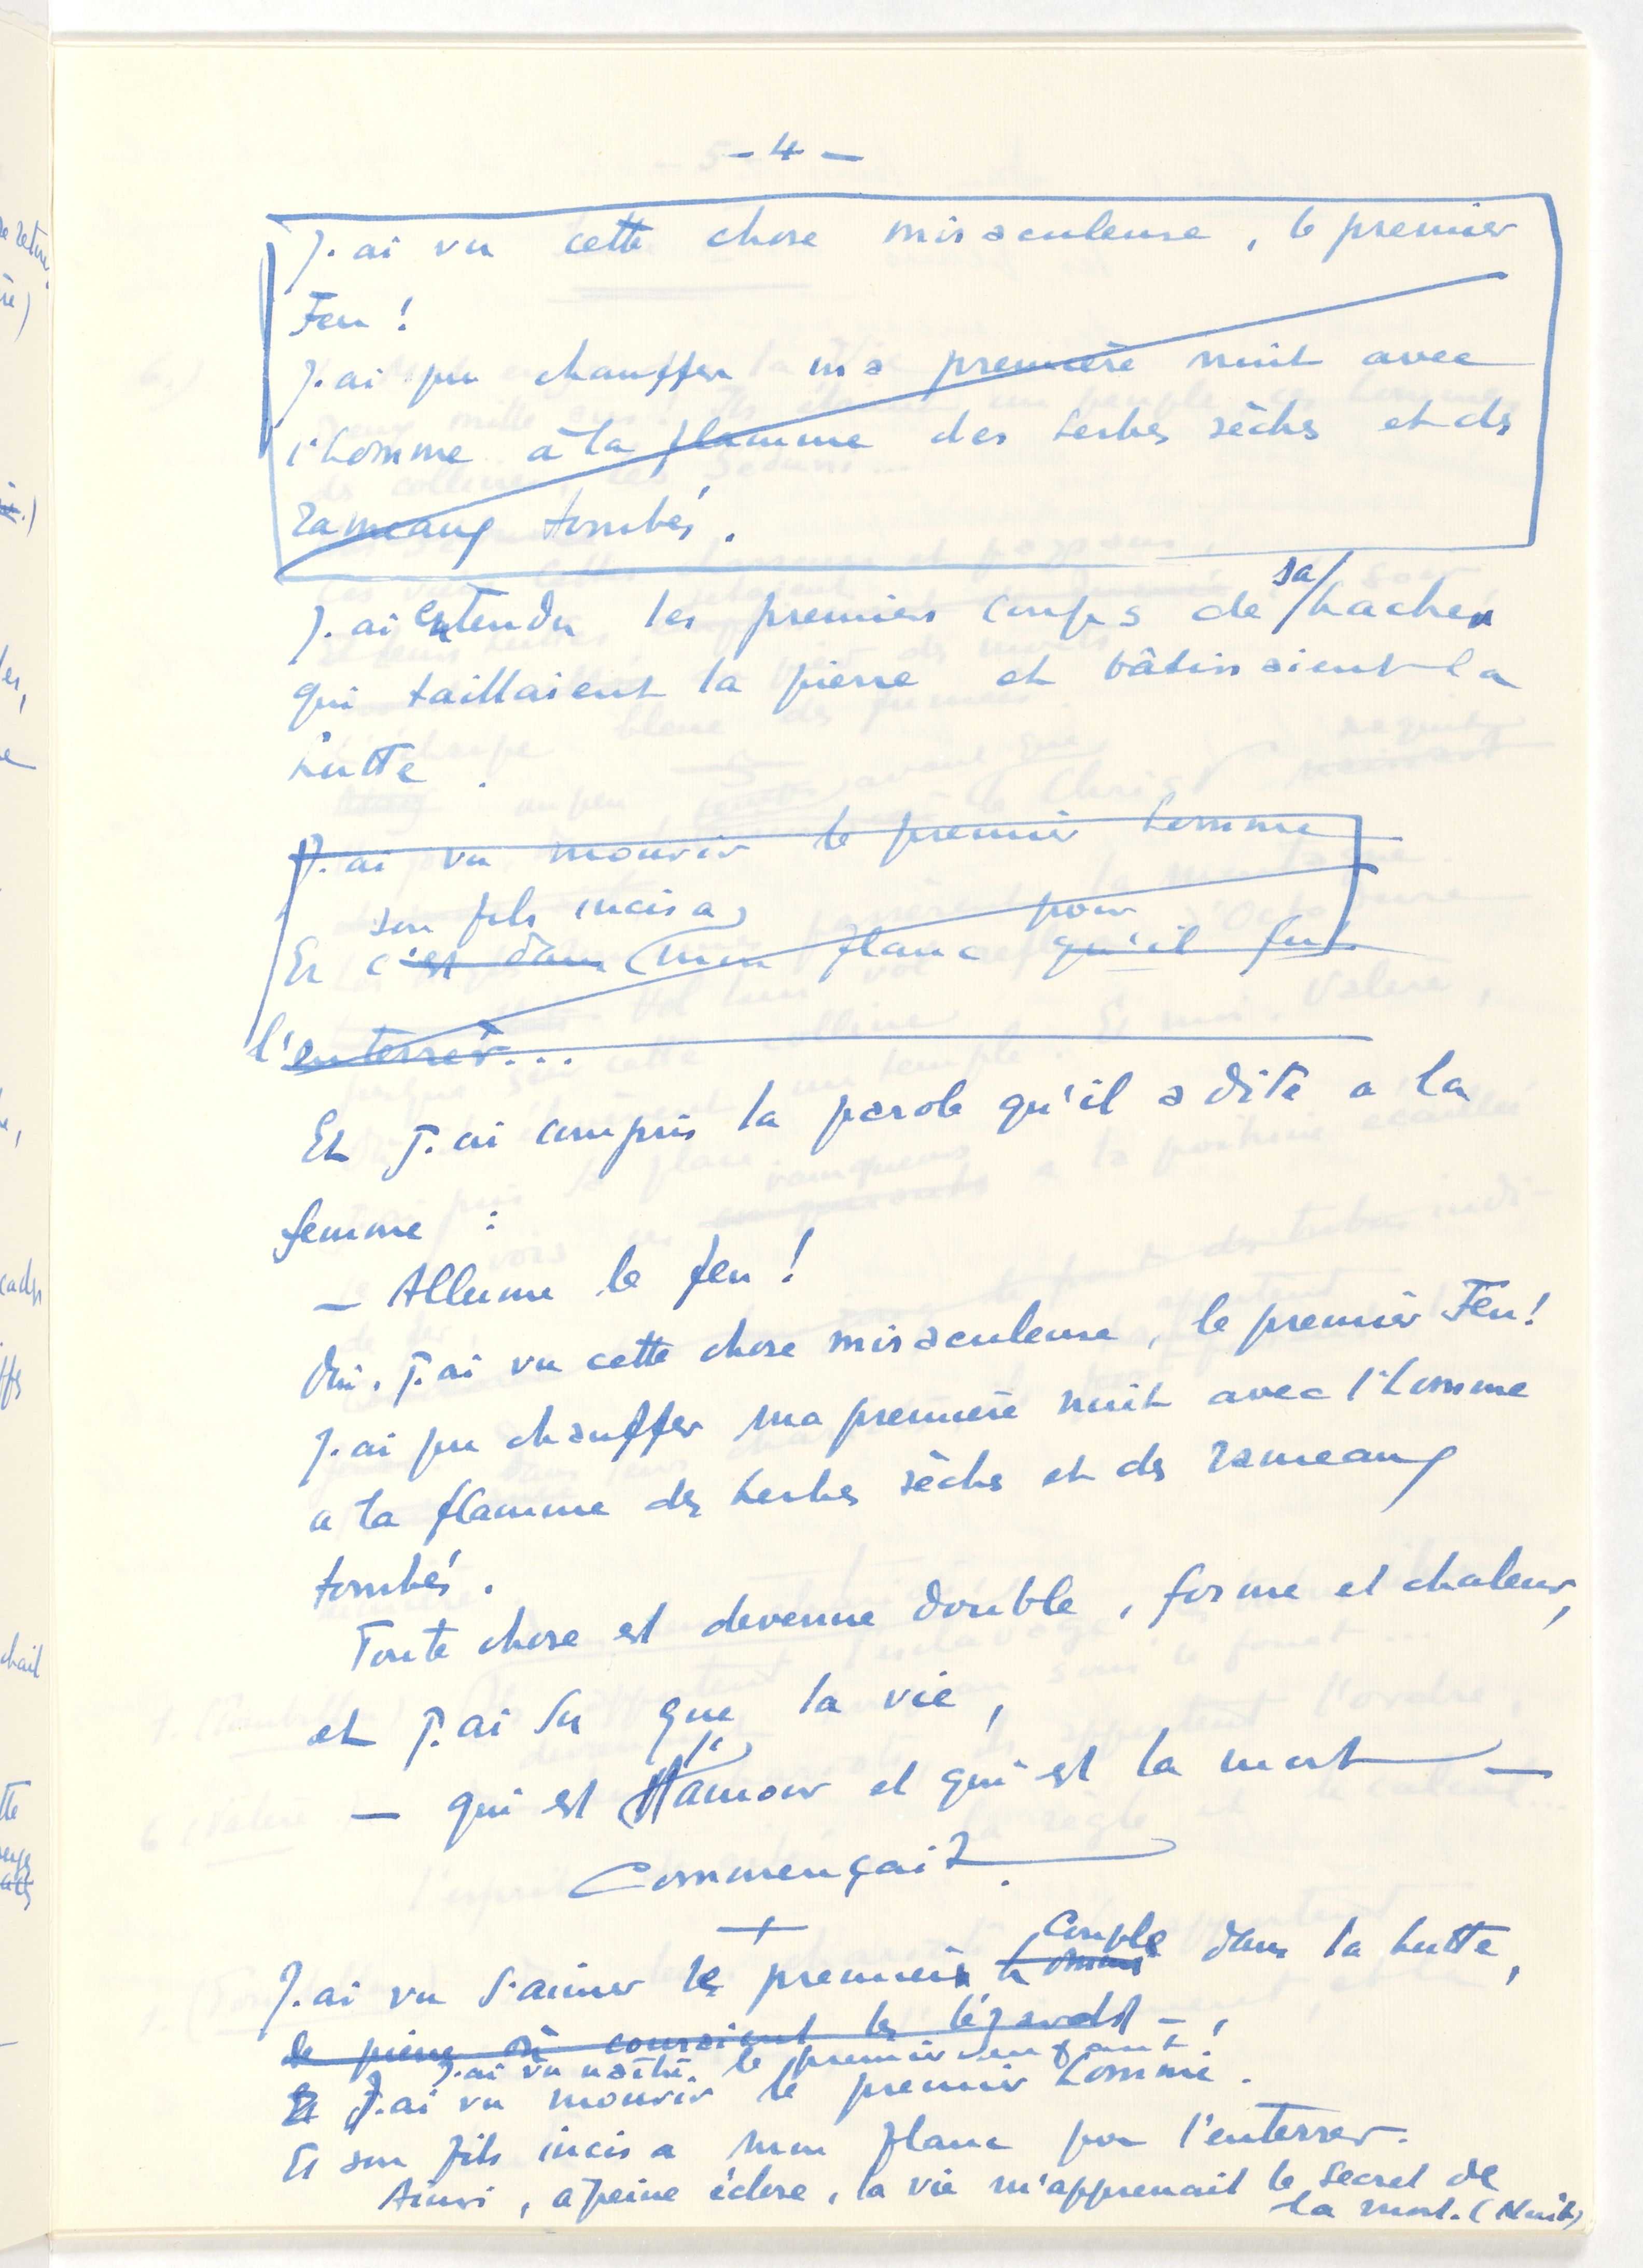 - 4 -
J'ai vu cette chose miraculeuse, le premier
Feu !
J'ai pu chauffer ma première nuit avec
l'homme à la flamme des herbes sèches et des
rameaux tombés.
J'ai entendu les premiers coups de sa/ hache
qui taillaient la pierre et bâtissaient la
hutte.
J'ai vu mourir le premier homme
son fils incisa
Et c'est dans mon flanc qu'il fut pour
l'enterrer...
Et J'ai compris la parole qu'il a dite a la
femme :
— Allume le feu !
Oui, J'ai vu cette chose miraculeuse, le premier Feu !
J'ai pu chauffer ma première nuit avec l'homme
a la flamme des herbes sèches et des rameaux
tombés.
Toute chose est devenue double, forme et chaleur,
et J'ai su que la vie,
— qui est l'amour et qui est la mort —
Commençait.
+
J'ai vu s'aimer le premier couple dans la hutte,
de pierre où couraient les lézards —
J'ai vu naître le premier enfant !
Et J'ai vu mourir le premier homme.
Et son fils incisa mon flanc pour l'enterrer.
Ainsi, à peine éclose, la vie m'apprenait le secret de
la mort. (Nuit)